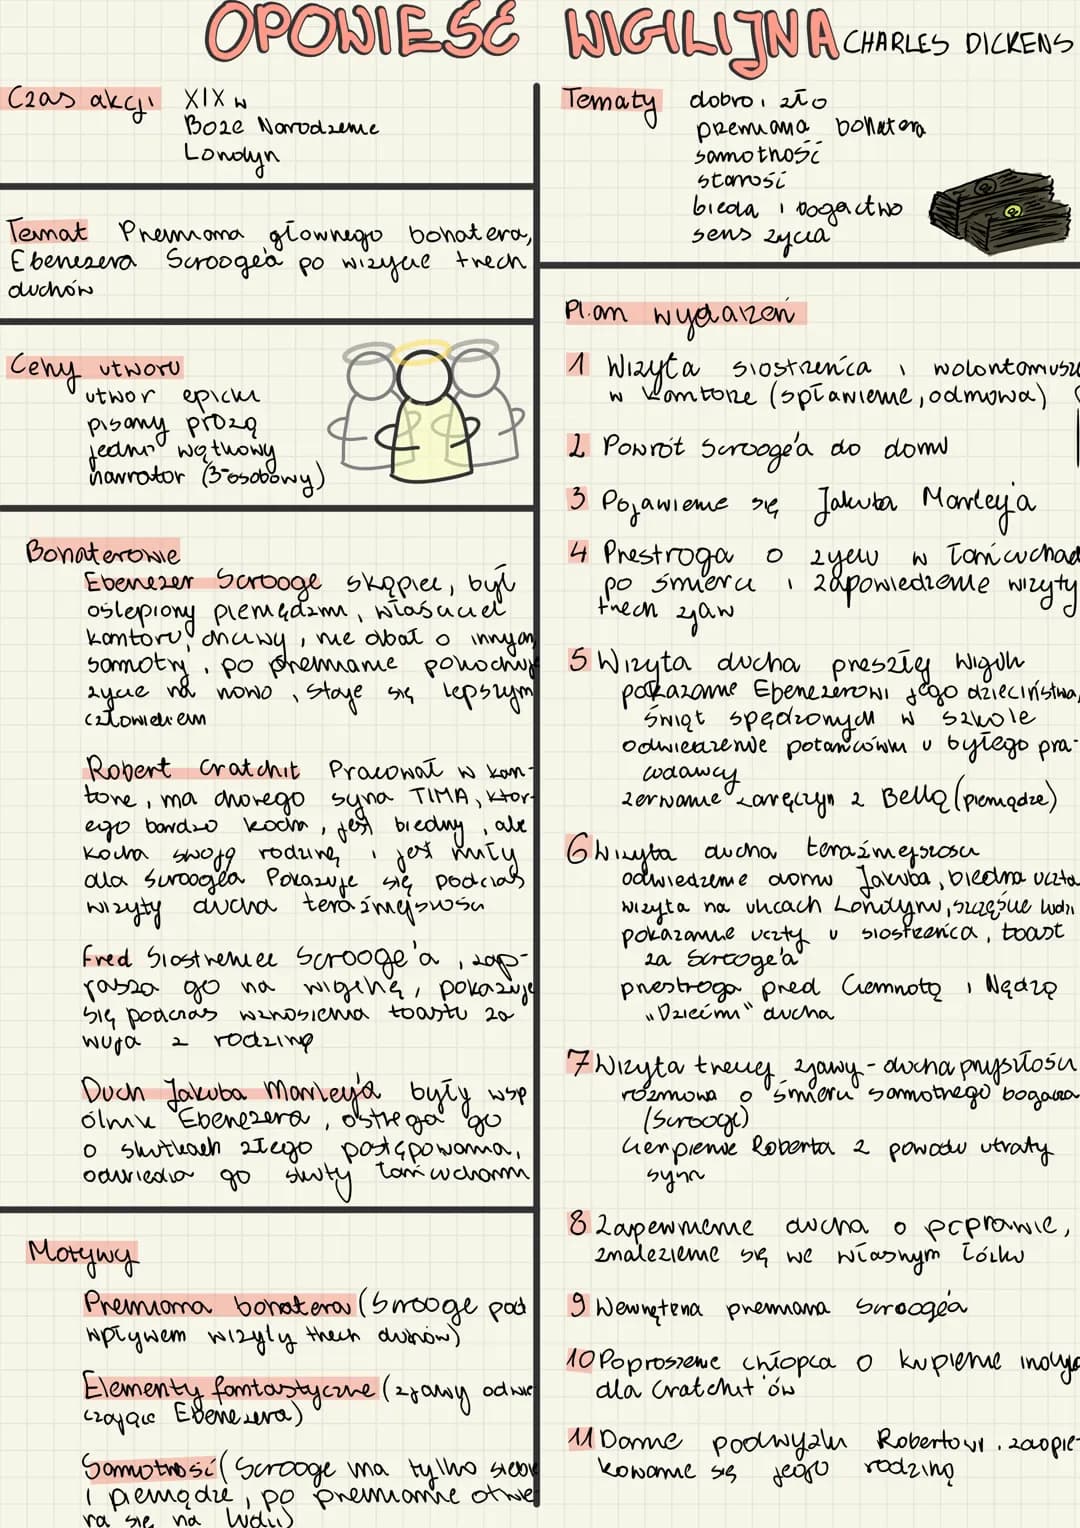 OPOWIEŚĆ WIGILIJNA CHARLES DICKENS
Czas akcji XIX w
Boże Narodzenie
Londyn
Temat Przemiana głownego bohatera,
Ebenezera Scrooge'a po wizycie trzech
duchów
Cechy utworu
utwór epicki
pisany prozą
jedno wątkowy
narrator (3-osobowy)
Bohaterowie
Ebenezer Scrooge skąpiec, był
oślepiony pieniędzmi, właściciel
kantoru, chciwy, nie dbał o innych,
samotny, po przemianie pokochuje
życie na nowo, staje się lepszym
człowiekiem
Robert Cratchit Pracował w kan-
torze, ma chorego syna TIMA, któr-
ego bardzo kocha, jest biedny, ale
kocha swoją rodzinę i jest miły
dla Scroogea Pokazuje się podczas
wizyty ducha teraźniejszości
Fred Siostrzeniec Scrooge'a, zap-
rasza go na wigilię, pokazuje
się podczas wznoszenia toastu za
wuja z rodziną
Duch Jakuba Marley'a były wsp
ólnik Ebenezera, ostrzega go
o skutkach złego postępowania,
odwiedza go skuty łańcuchami
Motywy
Przemiana bohatera (Scrooge pod
wpływem wizyty trzech duchów)
Elementy fantastyczne (zjawy odwie
dzające Ebenezera)
Samotność (Scrooge ma tylko siebie
i pieniądze, po przemianie otwie
ra się na ludzi)
Tematy dobro i zło
przemiana bohatera
samotność
starość
bieda i bogactwo
sens życia
Plan wydarzeń
1 Wizyta siostrzeńca i wolontariuszy
w kantorze (spławienie, odmowa)
2 Powrót Scrooge'a do domu
3 Pojawienie się Jakuba Marley'a
4 Przestroga o życiu w łańcuchach
po śmierci i zapowiedzenie wizyty
trzech zjaw
5 Wizyta ducha przeszłej wigilii
pokazanie Ebenezerowi jego dzieciństwa,
świąt spędzonych w szkole
odwiedzenie potańcówki u byłego pra-
codawcy
zerwanie zaręczyn z Bellą (pieniądze)
6 Wizyta ducha teraźniejszości
odwiedzenie domu Jakuba, biedna uczta
wizyta na ulicach Londynu, szczęście ludzi
pokazanie uczty u siostrzeńca, toast
za Scrooge'a
przestroga przed Ciemnotą i Nędzą
"Dziećmi" ducha
7 Wizyta trzeciej zjawy - ducha przyszłości
rozmowa o śmierci samotnego bogacza
(Scrooge)
cierpienie Roberta z powodu utraty
syna
8 Zapewnienie ducha o poprawie,
znalezienie się we własnym łóżku
9 Wewnętrzna przemiana Scroogea
10 Poproszenie chłopca o kupienie indyka
dla Cratchit'ów
11 Danie podwyżki Robertowi. zaopie-
kowanie się jego rodziną